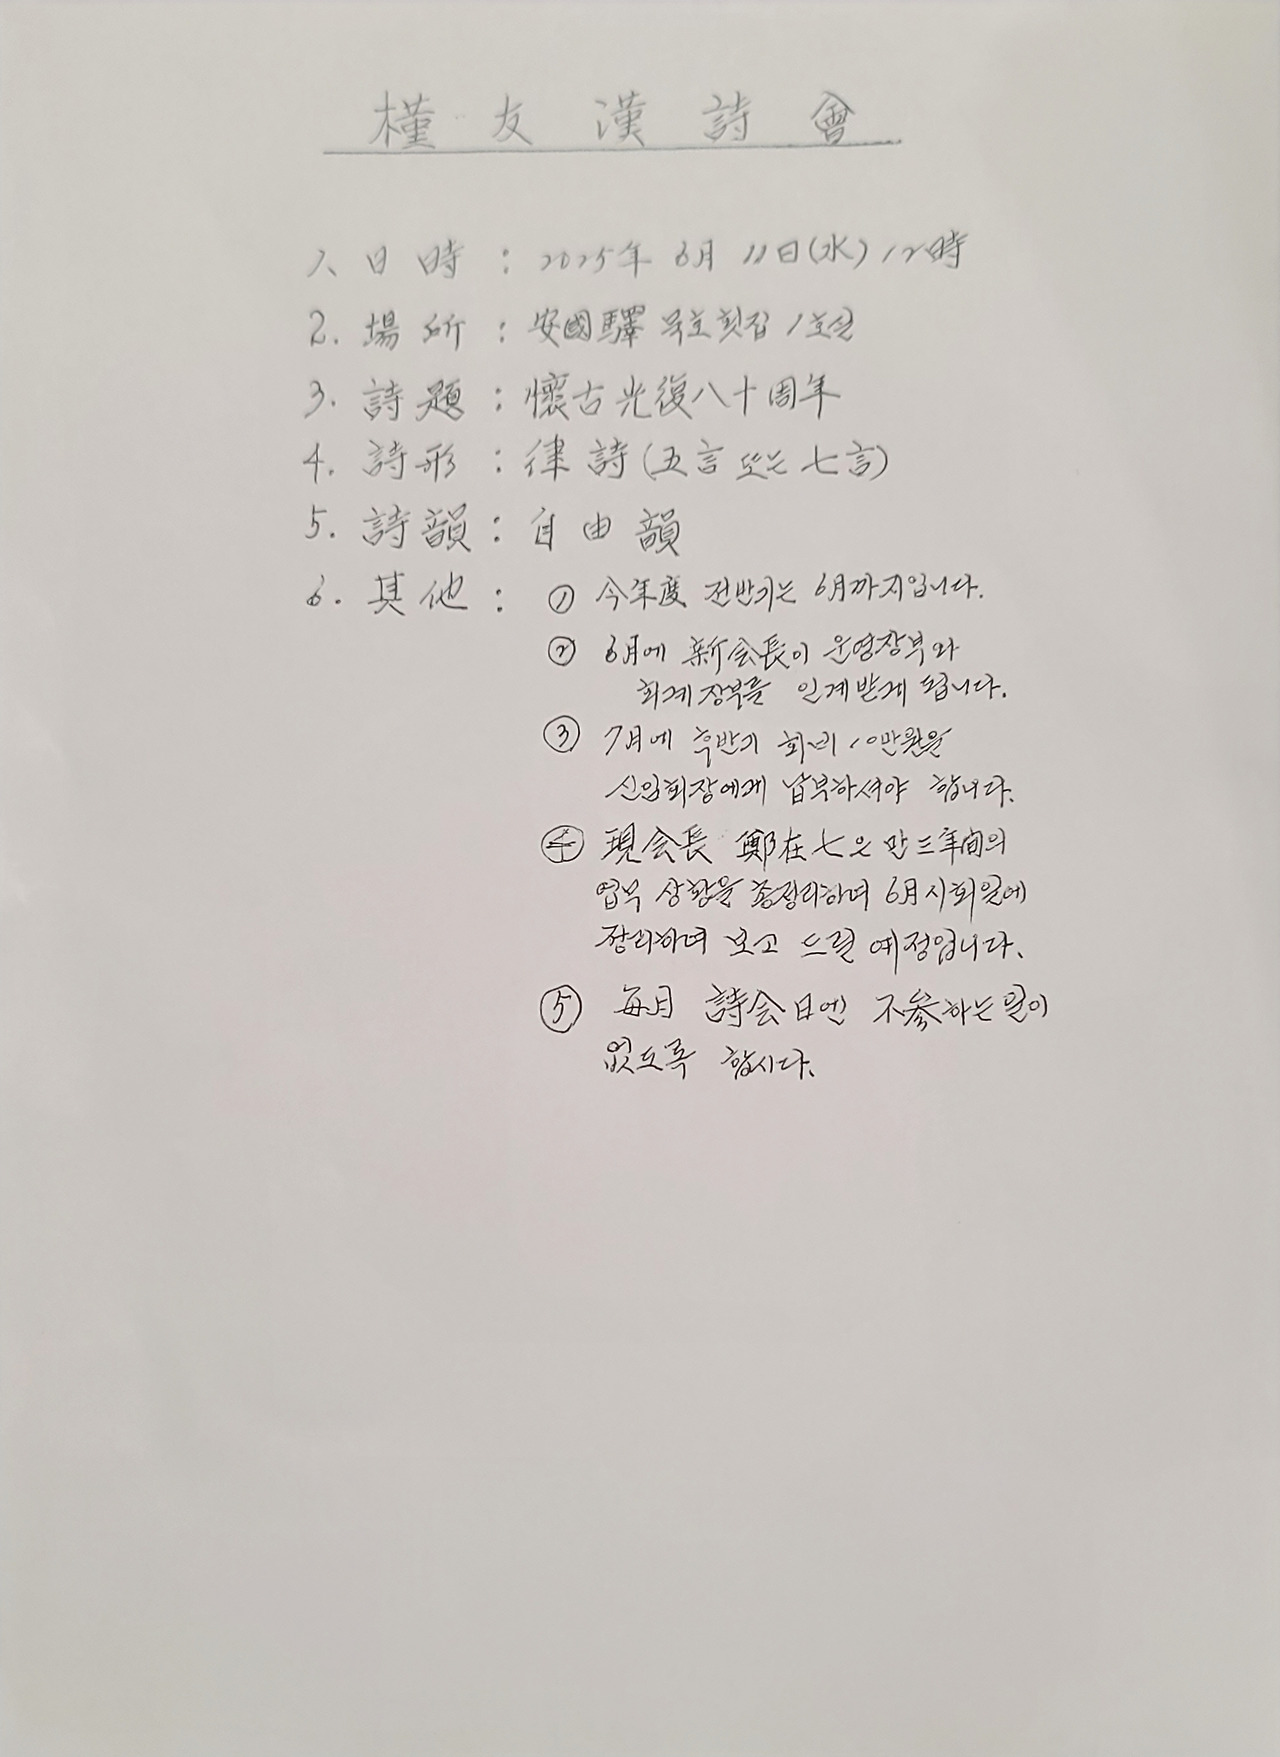 槿友漢詩會
1. 日時 : 2025年 6月 11日(水) 12時
2. 場所 : 安國驛 묵호횟집 1호실
3. 詩題 : 懷古光復八十周年
4. 詩形 : 律詩(五言 또는 七言)
5. 詩韻 : 自由韻
6. 其他 : ① 今年度 전반기는 6月까지입니다.
② 6月에 新会長이 운영장부와
회계장부를 인계받게 됩니다.
③ 7月에 후반기 회비 10만원을
신임회장에게 납부하셔야 합니다.
④ 現会長 鄭在七은 만 三年間의
업무 상황을 총정리하며 6月시회일에
정리하며 보고 드릴 예정입니다.
⑤ 每月 詩会日엔 不参하는 일이
없도록 합시다.